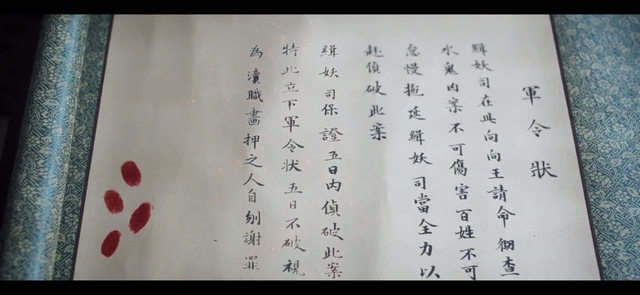 軍令狀
緝妖司在向向王請命彻查
水鬼内案不可傷害百姓不可
怠慢拖延緝妖司當全力以
赴偵破此案
緝妖司保證五日内偵破此案
特此立下軍令状五日不破視
為瀆職畫押之人自刎謝罪